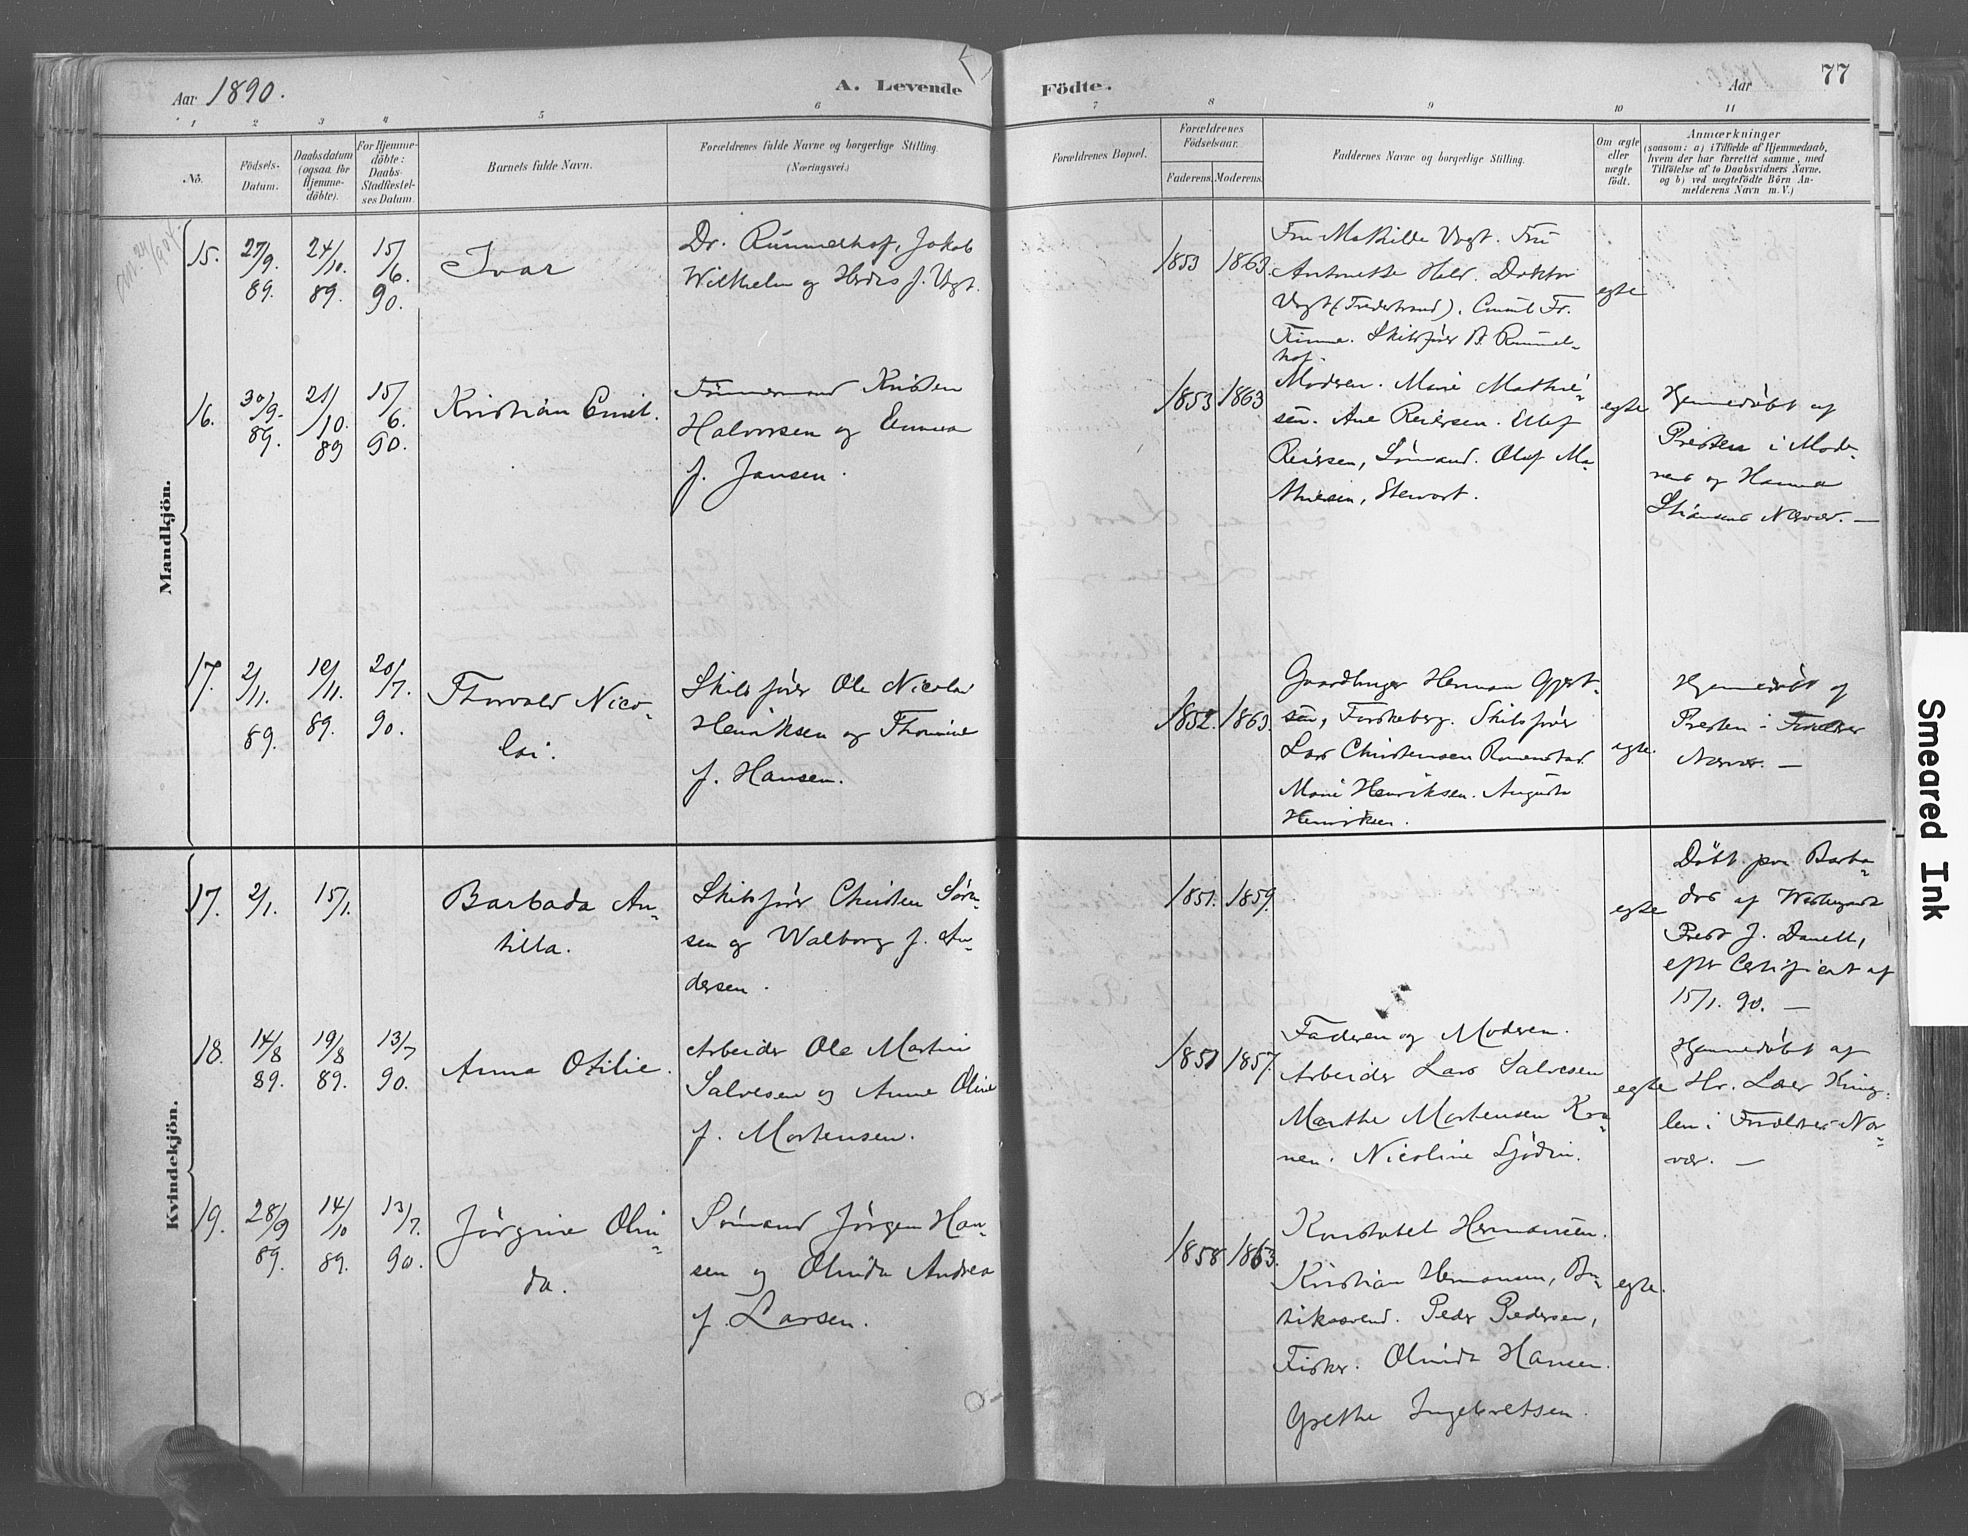 Aar 1890.
A. Levende
Födte.
Aar
77
1 2 3 4 5 6 7 8 9 10 11
No.
Födsels-
Datum.
Daabsdatum
(ogsaa for
Hjemme-
döbte).
For Hjemme-
döbte:
Daabs-
Stadfæstel-
ses Datum.
Barnets fulde Navn.
Forældrenes fulde Navne og borgerlige Stilling
(Næringsvei.)
Forældrenes Bopæl.
Forældrenes
Födselsaar.
Faderens. Moderens.
Faddernes Navne og borgerlige Stilling.
Om ægte
eller
uægte
födt.
Anmærkninger
(saasom: a) i Tilfælde af Hjemmedaab,
hvem der har forrettet samme, med
Tilföielse af to Daabsvidners Navne.
og b) ved uægtefödte Börn An-
melderens Navn m. V.)
Mandkjön.
15.
27/9.
89.
24/10.
89.
15/6.
90.
Ivar
Dr. Rummelhof, Jakob
Wilhelm og Herdis f. Vogt.
1853 1863
Fru Mathilde Vogt. Fru
Antonette Doktor
Vogt
Finne. Skibsfører Rummel-
hof.
egte
16.
30/9.
89.
21/10.
89
15/6.
90.
Kristian Emil.
Tømmermand Kristen
Halvorsen og Emma
f. Jansen.
1853 1863
Moderen. Marie Mathie-
sen. Ane Reiersen. Ellef
Reiersen, Sømand. Olaf Ma-
thiesen, Stewart.
egte
Hjemmedøbt af
Presten i Mode-
rens og Hanna
Nærvær. —
17.
2/11.
89.
10/11.
89.
20/7.
90.
Thorvald Nico-
lai.
Skibsfører Ole Nicolai
Henriksen og Thomine
f. Hansen.
1852. 1863.
Gaardbruger Herman Gjert-
sen, Skibsfører
Lars Christensen
Marie Henriksen. Augusta
Henriksen.
egte.
Hjemmedøbt af
Presten i Forældres
Nærvær. —
Kvindekjön.
17.
2/1.
15/1.
Barbada An-
tilla.
Skibsfører Christen Sørn-
sen og Walborg f. An-
dersen.
1851. 1859.
egte
Døbt paa Barba-
dos af
Prest J.
efter Certificat af
15/1. 90. —
18.
14/8
89.
19/8
89.
13/7
90.
Anna Otilie.
Arbeider Ole Martin
Salvesen og Anne Oline
f. Mortensen.
1851 1857.
Faderen og Moderen.
Arbeider Lars Salvesen
Marthe Mortensen Ko-
nen. Nicoline Sjødin.
egte
Hjemmedøbt af
Hr. Lærer
i Forældres Nær-
vær. —
19.
28/9
89.
14/10
89.
13/7.
90.
Jørgine Olin-
da.
Sømand Jørgen Han-
sen og Olinda Andrea
f. Larsen.
1858 1863.
Konstabel Hermansen.
Kristian Hermansen, Bu-
tiksvend. Peder Pedersen,
Fisker. Olinda Hansen.
Grethe Ingebretsen.
egte.
Smeared Ink